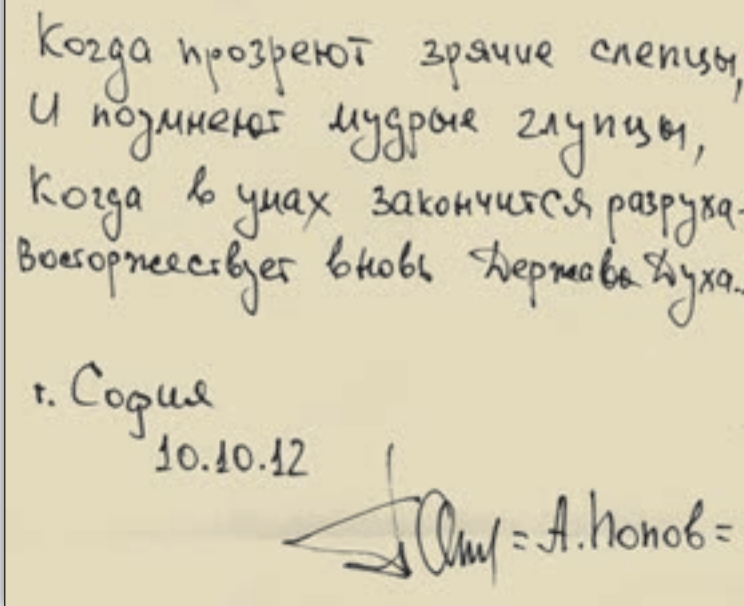 Когда прозреют зрячие слепцы,
И поумнеют мудрые глупцы,
Когда в умах закончится разруха-
Восторжествует вновь Держава Духа..
г. София
10.10.12
= А. Попов =